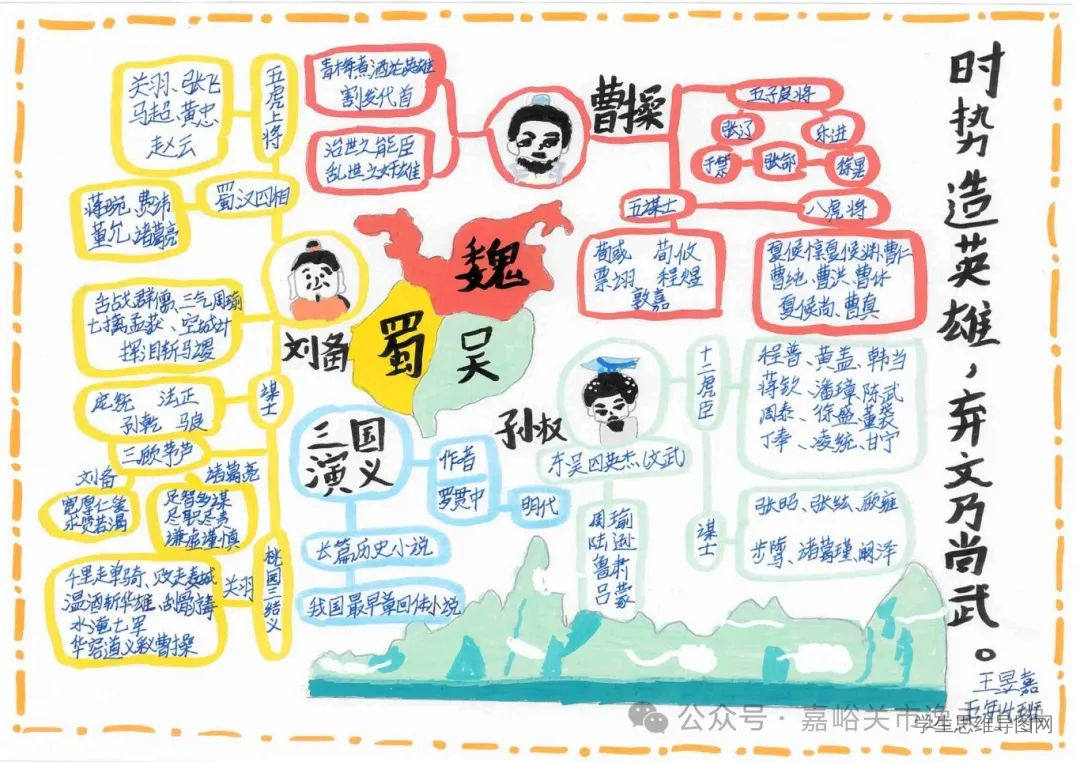 时势造英雄，弃文乃尚武。
王昱嘉
五年4班
曹操
青梅煮酒论英雄
割发代首
治世之能臣
乱世之奸雄
五子良将
张辽
乐进
于禁
张郃
徐晃
五谋士
荀彧 荀攸
贾诩 程昱
郭嘉
八虎将
夏侯惇夏侯渊曹仁
曹纯、曹洪、曹休
夏侯尚、曹真
魏
蜀
吴
刘备
五虎上将
关羽、张飞
马超、黄忠
赵云
蜀汉四相
蒋琬、费祎
董允、诸葛亮
舌占戈群儒、三气周瑜
七擒孟获、空城计
挥泪斩马谡
谋士
庞统 法正
孙乾 马良
三顾茅芦
刘备
宽厚仁爱
求贤若渴
诸葛亮
足智多谋
尽职尽责
谦虚谨慎
桃园三结义
关羽
千里走单骑、败走麦城
温酒斩华雄、刮骨疗毒
水淹七军
华容道义释曹操
三国
演义
作者
罗贯中
明代
长篇历史小说
我国最早章回体小说
孙权
十二虎臣
程普、黄盖、韩当
蒋钦、潘璋、陈武
周泰、徐盛、董袭
丁奉、凌统、甘宁
谋士
张昭、张纮、顾雍
步骘、诸葛瑾、阚泽
东吴四英杰（文武）
周瑜
陆逊
鲁肃
吕蒙
公众号·嘉峪关市逸夫
学生思维导图网